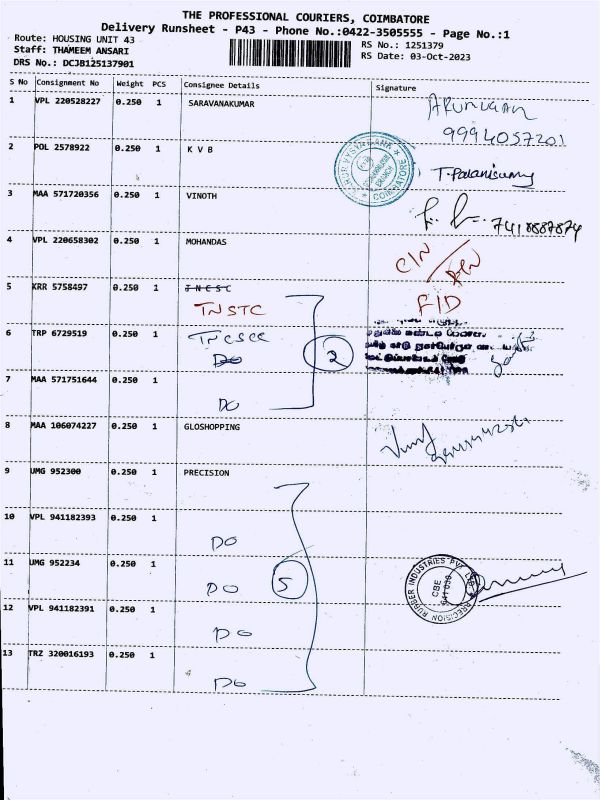 THE PROFESSIONAL COURIERS, COIMBATORE
Delivery Runsheet - P43 - Phone No.:0422-3505555 - Page No.:1
Route: HOUSING UNIT 43
RS No.: 1251379
Staff: THAMEEM ANSARI
RS Date: 03-Oct-2023
DRS No.: DCJB125137901
S No Consignment No Weight PCS Consignee Details Signature
1 VPL 220528227 0.250 1 SARAVANAKUMAR
9994057201
2 POL 2578922 0.250 1 K V B T. Palanisamy
KARUR VYSYA BANK
COIMBATORE
3 MAA 571720356 0.250 1 VINOTH 7418887874
4 VPL 220658302 0.250 1 MOHANDAS
5 KRR 5758497 0.250 1 T N C S C
TNSTC
6 TRP 6729519 0.250 1 TNCSCC
DO
2
7 MAA 571751644 0.250 1
DO
8 MAA 106074227 0.250 1 GLOSHOPPING
9 UMG 952300 0.250 1 PRECISION
10 VPL 941182393 0.250 1
DO
11 UMG 952234 0.250 1
DO
5
PRECISION RUBBER INDUSTRIES PVT LTD
CBE
641 030
12 VPL 941182391 0.250 1
DO
13 TRZ 320016193 0.250 1
DO